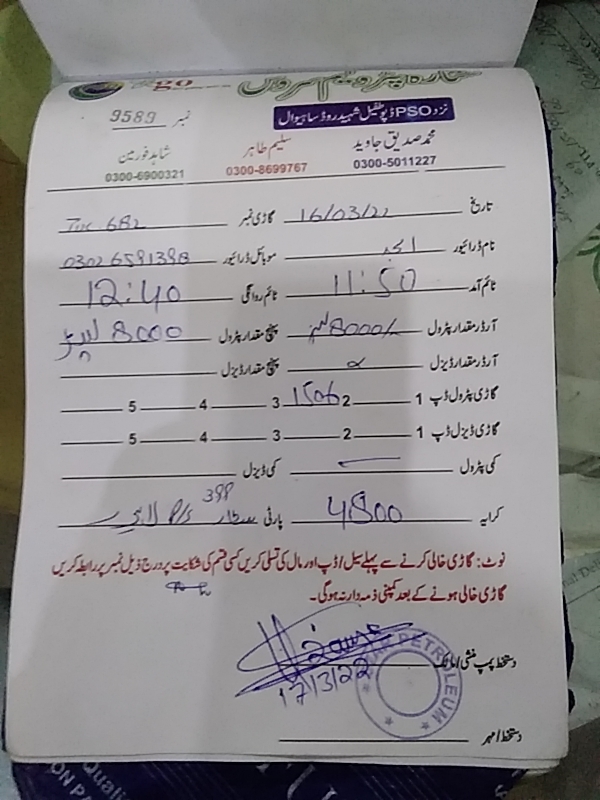 go
نزد PSO ڈپو طفیل شہید روڈ ساہیوال
نمبر 9589
محمد صدیق جاوید سلیم طاہر شاہد فورمین
0300-5011227 0300-8699767 0300-6900321
تاریخ 16/03/22 گاڑی نمبر 682
نام ڈرائیور موبائل ڈرائیور 0302 6591398
ٹائم آمد 11:50 ٹائم روانگی 12:40
آرڈر مقدار پٹرول 8000/ لیٹر پہنچ مقدار پٹرول 8000 لیٹر
آرڈر مقدار ڈیزل پہنچ مقدار ڈیزل
گاڑی پٹرول ڈپ 1 2 1506 3 4 5
گاڑی ڈیزل ڈپ 1 2 3 4 5
کمی پٹرول کمی ڈیزل
کرایہ 4800 پارٹی
نوٹ: گاڑی خالی کرنے سے پہلے سیل / ڈپ اور مال کی تسلی کریں کسی قسم کی شکایت پر درج ذیل نمبر پر رابطہ کریں
گاڑی خالی ہونے کے بعد کمپنی ذمہ دار نہ ہوگی۔
دستخط پمپ منشی / مالک
17/3/22
PETROLEUM
دستخط / مہر